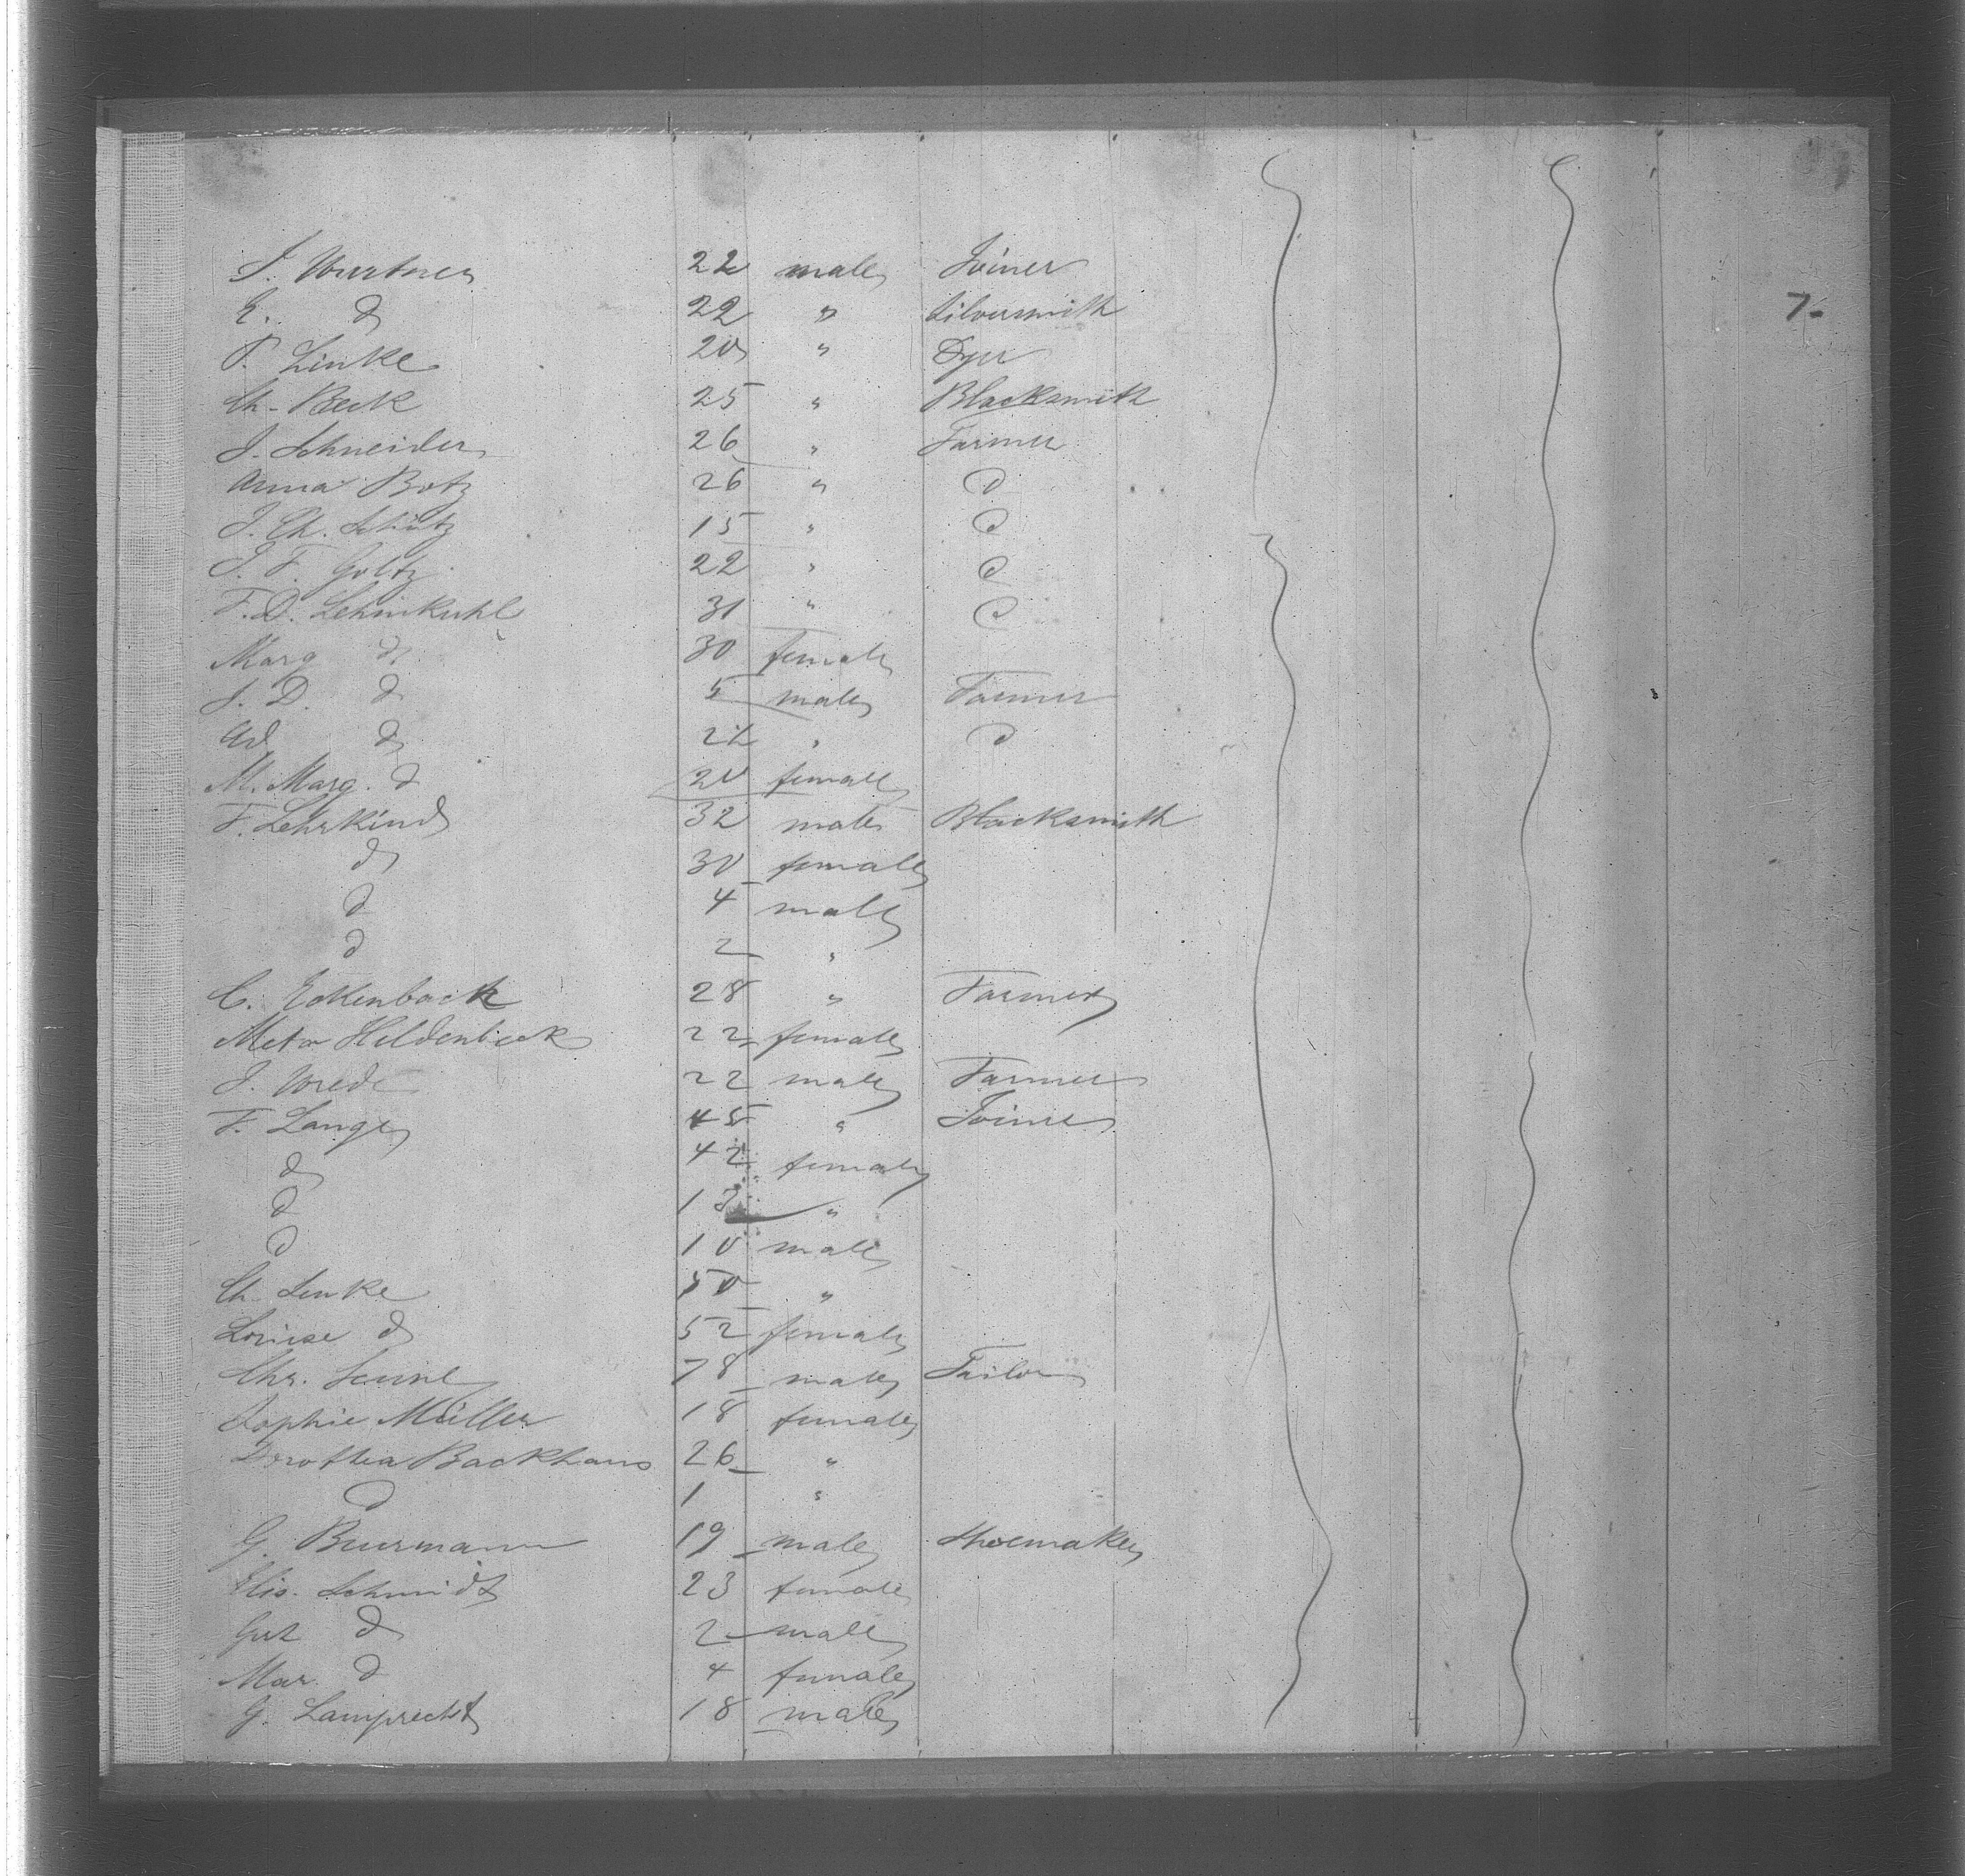 J. Wurtner 22 male Joiner
E. d 22 " Silversmith 7-
P. Linke 20 " Dyer
Ch. Beck 25 " Blacksmith
J. Schneider 26 " Farmer
Anna Botz 26 " d
J. Ch. Schütz 15 " d
J. F. Goltz 22 " d
F. D. Lehmkuhl 31 " d
Marg d 30 female
J. D. d 5 male Farmer
Ad d 22 " d
M. Marg. d 20 female
F. Lehrkind 32 male Blacksmith
d 30 female
d 4 male
d 2 "
C. Eckenback 28 " Farmer
Meta Heldenbeck 22 female
J. Wrede 22 male Farmer
F. Lange 45 " Joiner
d 42 female
d 13 "
d 10 male
Ch. Lenke 50 "
Louise d 52 female
Chr. 78 male Tailor
Sophie Müller 18 female
Dorothea Backhaus 26 "
d 1 "
G. Buurmann 19 male Shoemaker
Elis. Schmidt 23 female
Gust d 2 male
Mar. d 4 female
G. Lamprecht 18 male